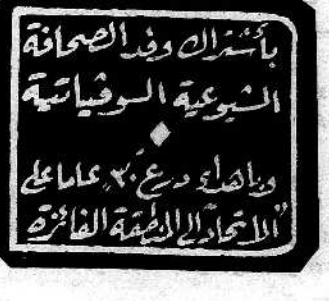 بأشتراك وفد الصحافة
الشيوعية السوفياتية
وباهداء درع ٣٠ عاما على
"الاتحاد" الى المنطقة الفائزة